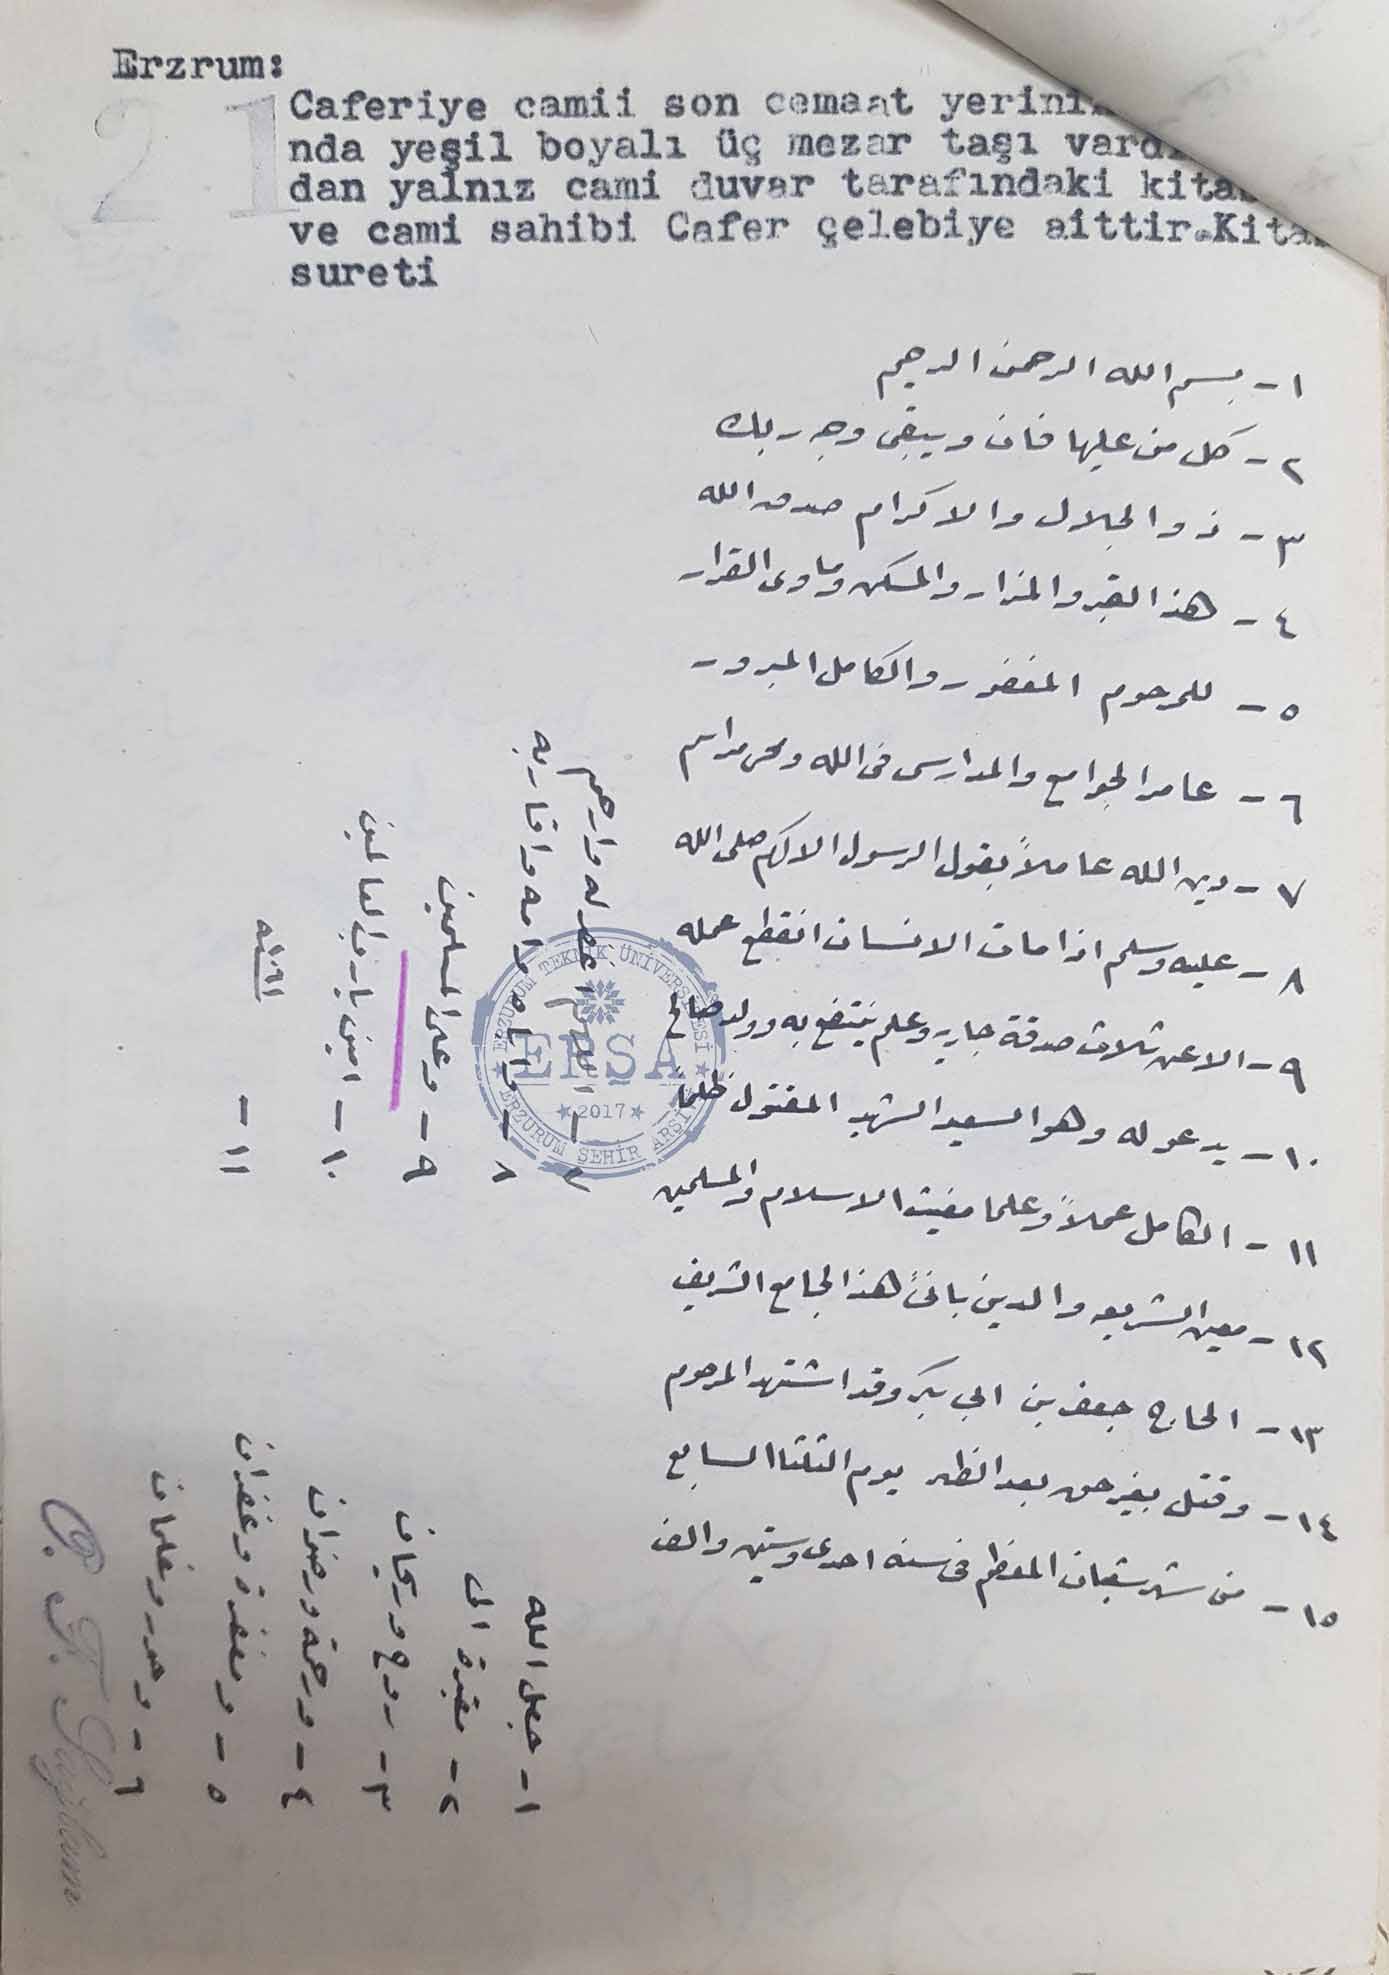 Erzrum:
21
Caferiye camii son cemaat yerinin
nda yeşil boyalı üç mezar taşı vardı
dan yalnız cami duvar tarafındaki kitab
ve cami sahibi Cafer çelebiye aittir.Kita
sureti
١- بسم الله الرحمن الرحيم
٢- كل من عليها فان ويبقى وجه ربك
٣- ذو الجلال والاكرام صدق الله
٤- هذا القبر والمزار والمسكن وماوى القرار
٥- للمرحوم المغفور والكامل المبرور
٦- عامر الجوامع والمدارس فى الله ومحى مراسم
٧- دين الله عاملاً بقول الرسول الاكرم صلى الله
٨- عليه وسلم اذا مات الانسان انقطع عمله
٩- الا عن ثلاث صدقة جاريه وعلم ينتفع به وولد صالح
١٠- يدعو له وهو السعيد الشهيد المقتول ظلماً
١١- الكامل عملاً وعلما مغيث الاسلام والمسلمين
١٢- معين الشريعه والدين بانئ هذا الجامع الشريف
١٣- الحاج جعفر بن ابي بكر وقد اشتهد المرحوم
١٤- وقتل بغير حق بعد الظهر يوم الثلثا السابع
١٥- من شهر شعبان المعظم فى سنه احدى وستين والف
١- جعل الله
٢- مقبرة الى
٣- روح وريحان
٤- ورحمة ورضوان
٥- ومغفرة وغفران
٦- وحور وغلمان
٧- اللهم اغفر له وارحم
٨- واباه وامه واقاربه
٩- وعلى المسلمين
١٠- امين يا رب العالمين
١١- ١٠٦١
ERZURUM TEKNİK ÜNİVERSİTESİ
ERSA
2017
ERZURUM ŞEHİR ARŞİVİ